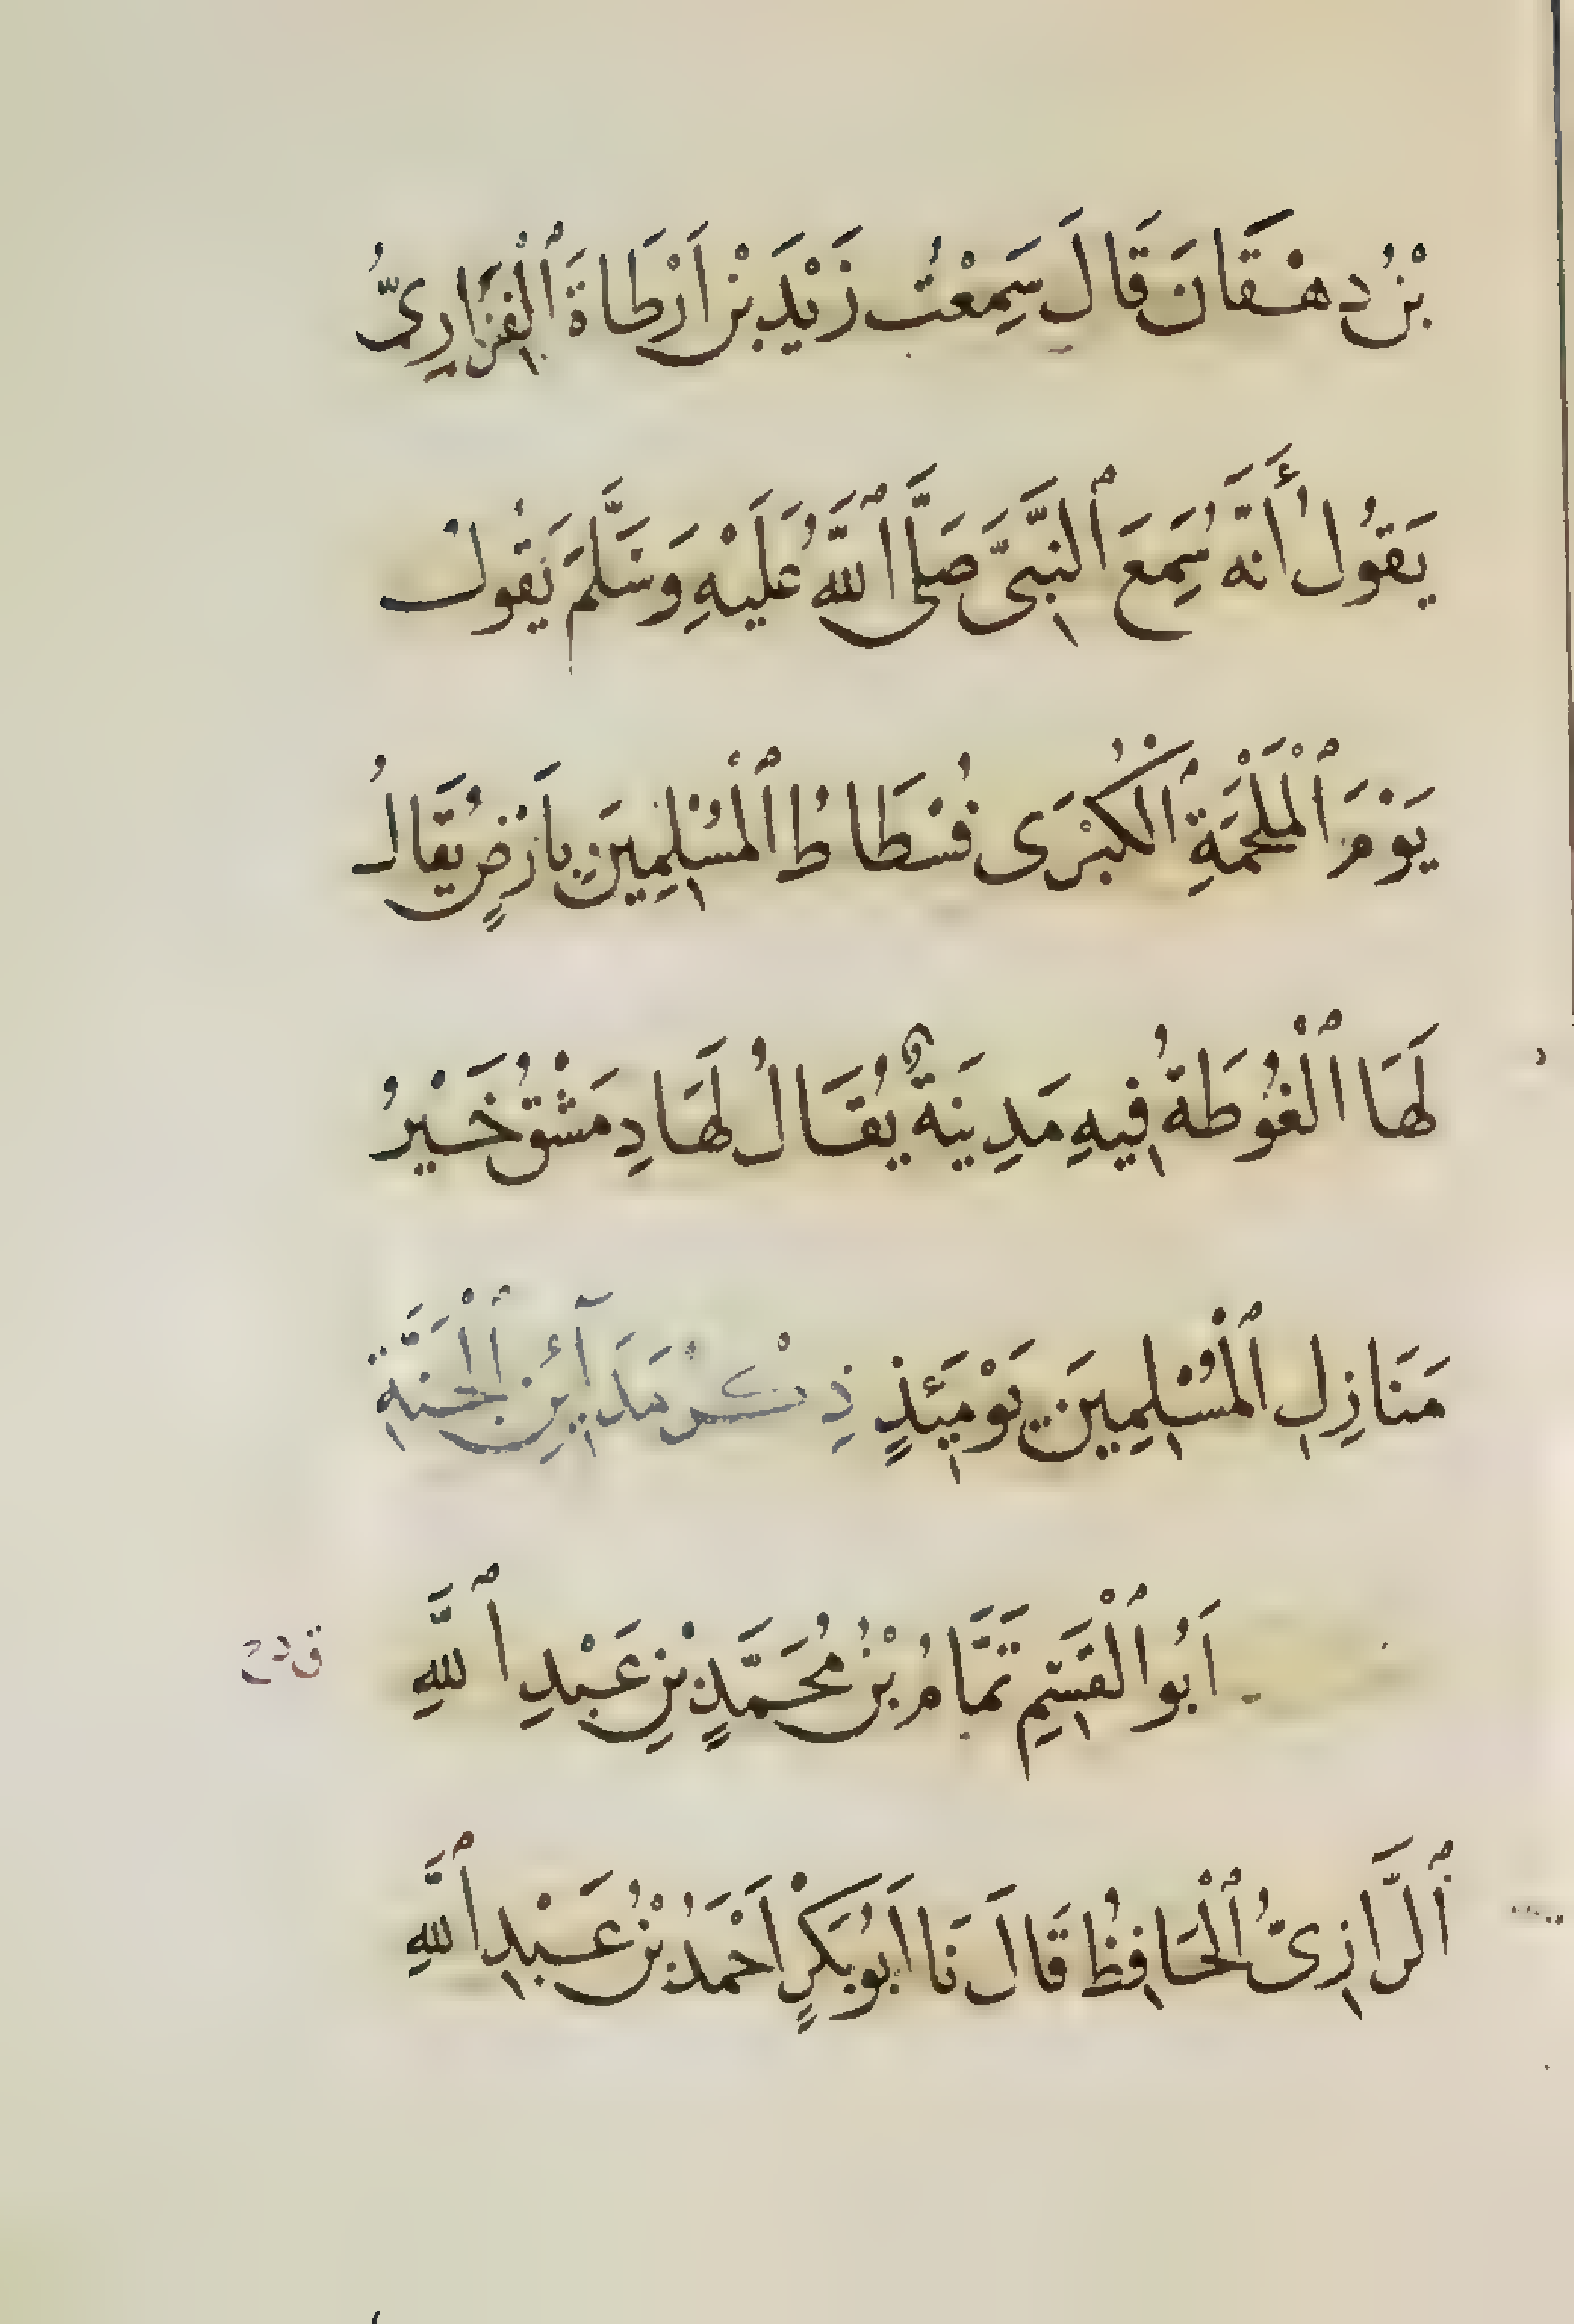 بْنُ دِهْقَانَ قَالَ سَمِعْتُ زَيْدَ بْنَ اَرْطَاةَ ٱلْفَزَارِىَّ
يَقُولُ أَنَّهُ سَمِعَ ٱلنَّبِىَّ صَلَّى ٱللَّهُ عَلَيْهِ وَسَلَّمَ يَقُولُ
يَوْمَ ٱلْمَلْحَمَةِ ٱلْكُبْرَى فُسْطَاطُ ٱلْمُسْلِمِينَ بِاَرْضٍ يُقَالُ
لَهَا ٱلْغُوطَةُ فِيهِ مَدِينَةٌ يُقَالُ لَهَا دِمَشْقُ خَيْرُ
مَنَازِلِ ٱلْمُسْلِمِينَ يَوْمَئِذٍ ذِكْرُ مَدَآئِنِ ٱلْجَنَّةِ
اَبُو ٱلْقَسَمِ تَمَّامُ بْنُ مُحَمَّدِ بْنِ عَبْدِ ٱللَّهِ
ٱلرَّازِىُّ ٱلْحَافِظُ قَالَ نَا اَبُو بَكْرٍ اَحْمَدُ بْنُ عَبْدِ ٱللَّهِ